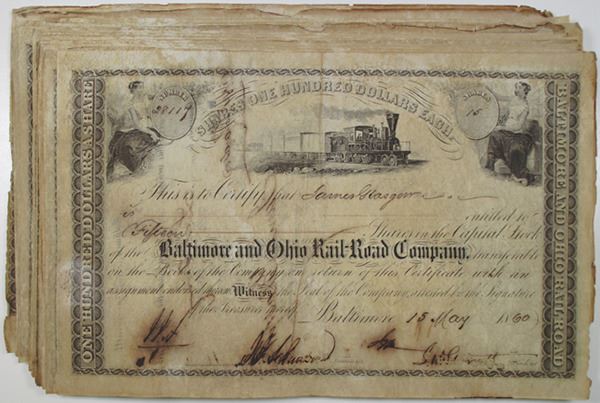 NUMBER
28117
SHARES ONE HUNDRED DOLLARS EACH.
SHARES
15
This is to Certify that James
is entitled to
Fifteen Shares in the Capital Stock
of the Baltimore and Ohio Rail-Road Company, transferable
on the Books of the Company, on return of this Certificate with an
assignment endorsed thereon. Witness, the Seal of the Company, attested by the Signature
of the Treasurer thereof. Baltimore 15 May 1860
ONE HUNDRED DOLLARS A SHARE
BALTIMORE AND OHIO RAIL-ROAD